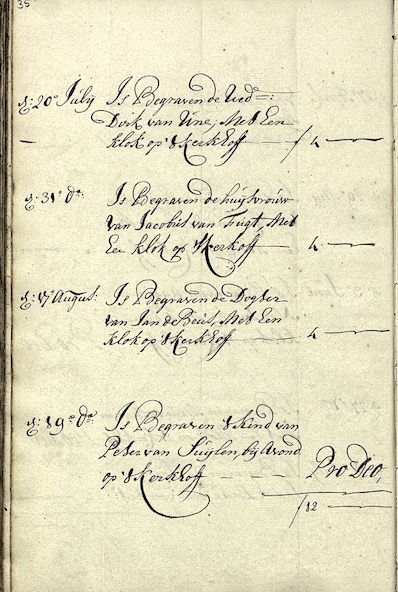 35
d: 20e July Is Begraven de Wede:
Dirk van Vine, Met Een
klok op 't Kerkhof f 4
d: 31e do: Is Begraven de huijsvrouw
van Jacobus van Tugt, Met
Ee klok op 't Kerkoff 4
d: 17e August: Is Begraven de Dogter
van Jan de Beus, Met Een
klok op 't Kerkhof 4
d: 19e do Is Begraven 't Kind van
Peter van Suijlen, bij Avond
op 't Kerkhoff Pro Deo,
f 12